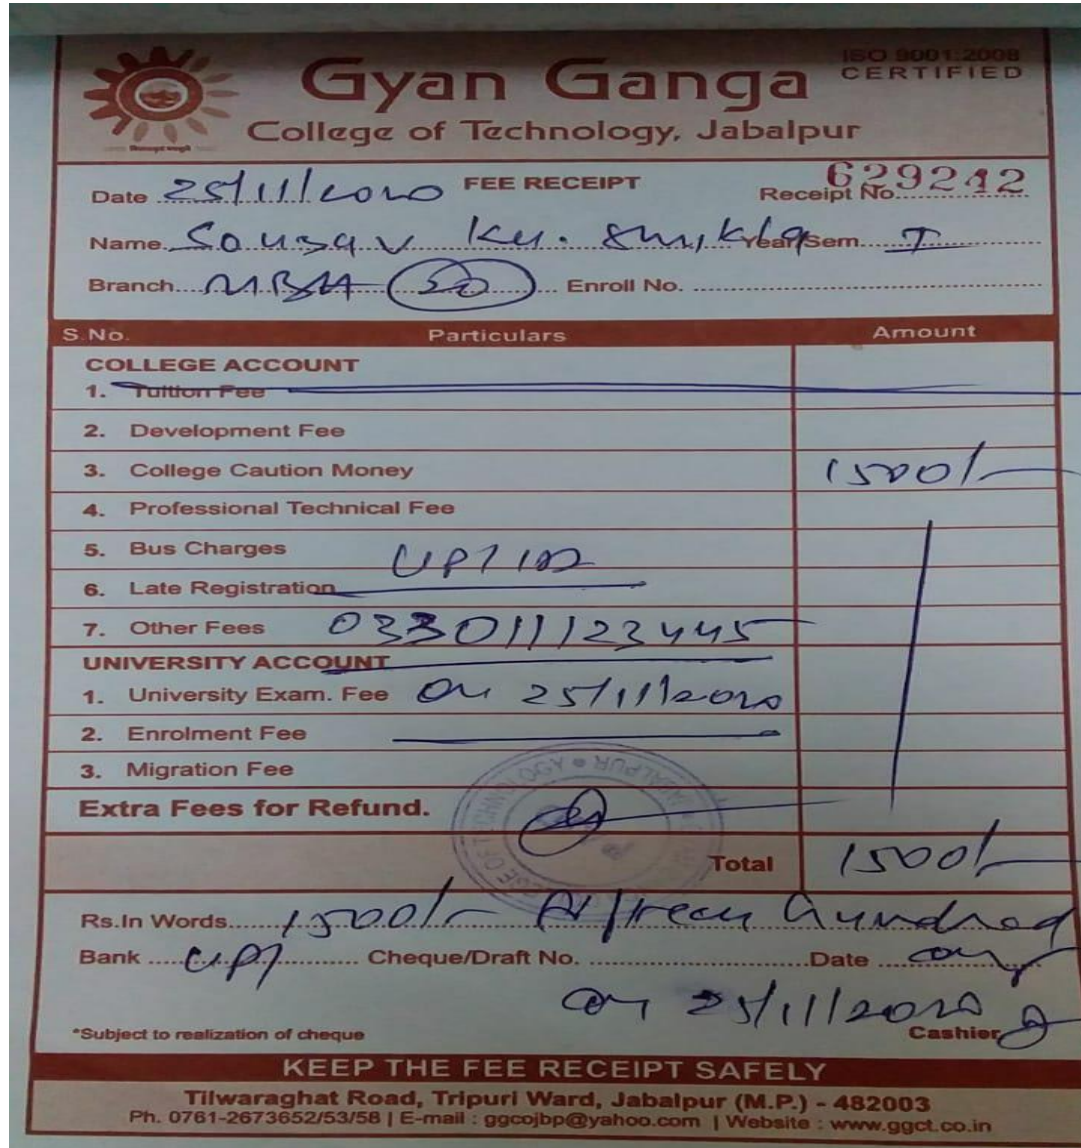 ISO 9001:2008
CERTIFIED
Gyan Ganga
College of Technology, Jabalpur
Date 25/11/2020 FEE RECEIPT Receipt No. 629242
Name Sourav Ku. Shukla Year/Sem. I
Branch MBA (20) Enroll No.
S.No. Particulars Amount
COLLEGE ACCOUNT
1. Tuition Fee
2. Development Fee
3. College Caution Money 1500/-
4. Professional Technical Fee
5. Bus Charges UPI ID
6. Late Registration
7. Other Fees 033011123445
UNIVERSITY ACCOUNT
1. University Exam. Fee On 25/11/2020
2. Enrolment Fee
3. Migration Fee
Extra Fees for Refund.
Total 1500/-
Rs.In Words 1500/- hundred
Bank UPI Cheque/Draft No. Date
on 25/11/2020
*Subject to realization of cheque Cashier
KEEP THE FEE RECEIPT SAFELY
Tilwaraghat Road, Tripuri Ward, Jabalpur (M.P.) - 482003
Ph. 0761-2673652/53/58 | E-mail : ggcojbp@yahoo.com | Website : www.ggct.co.in